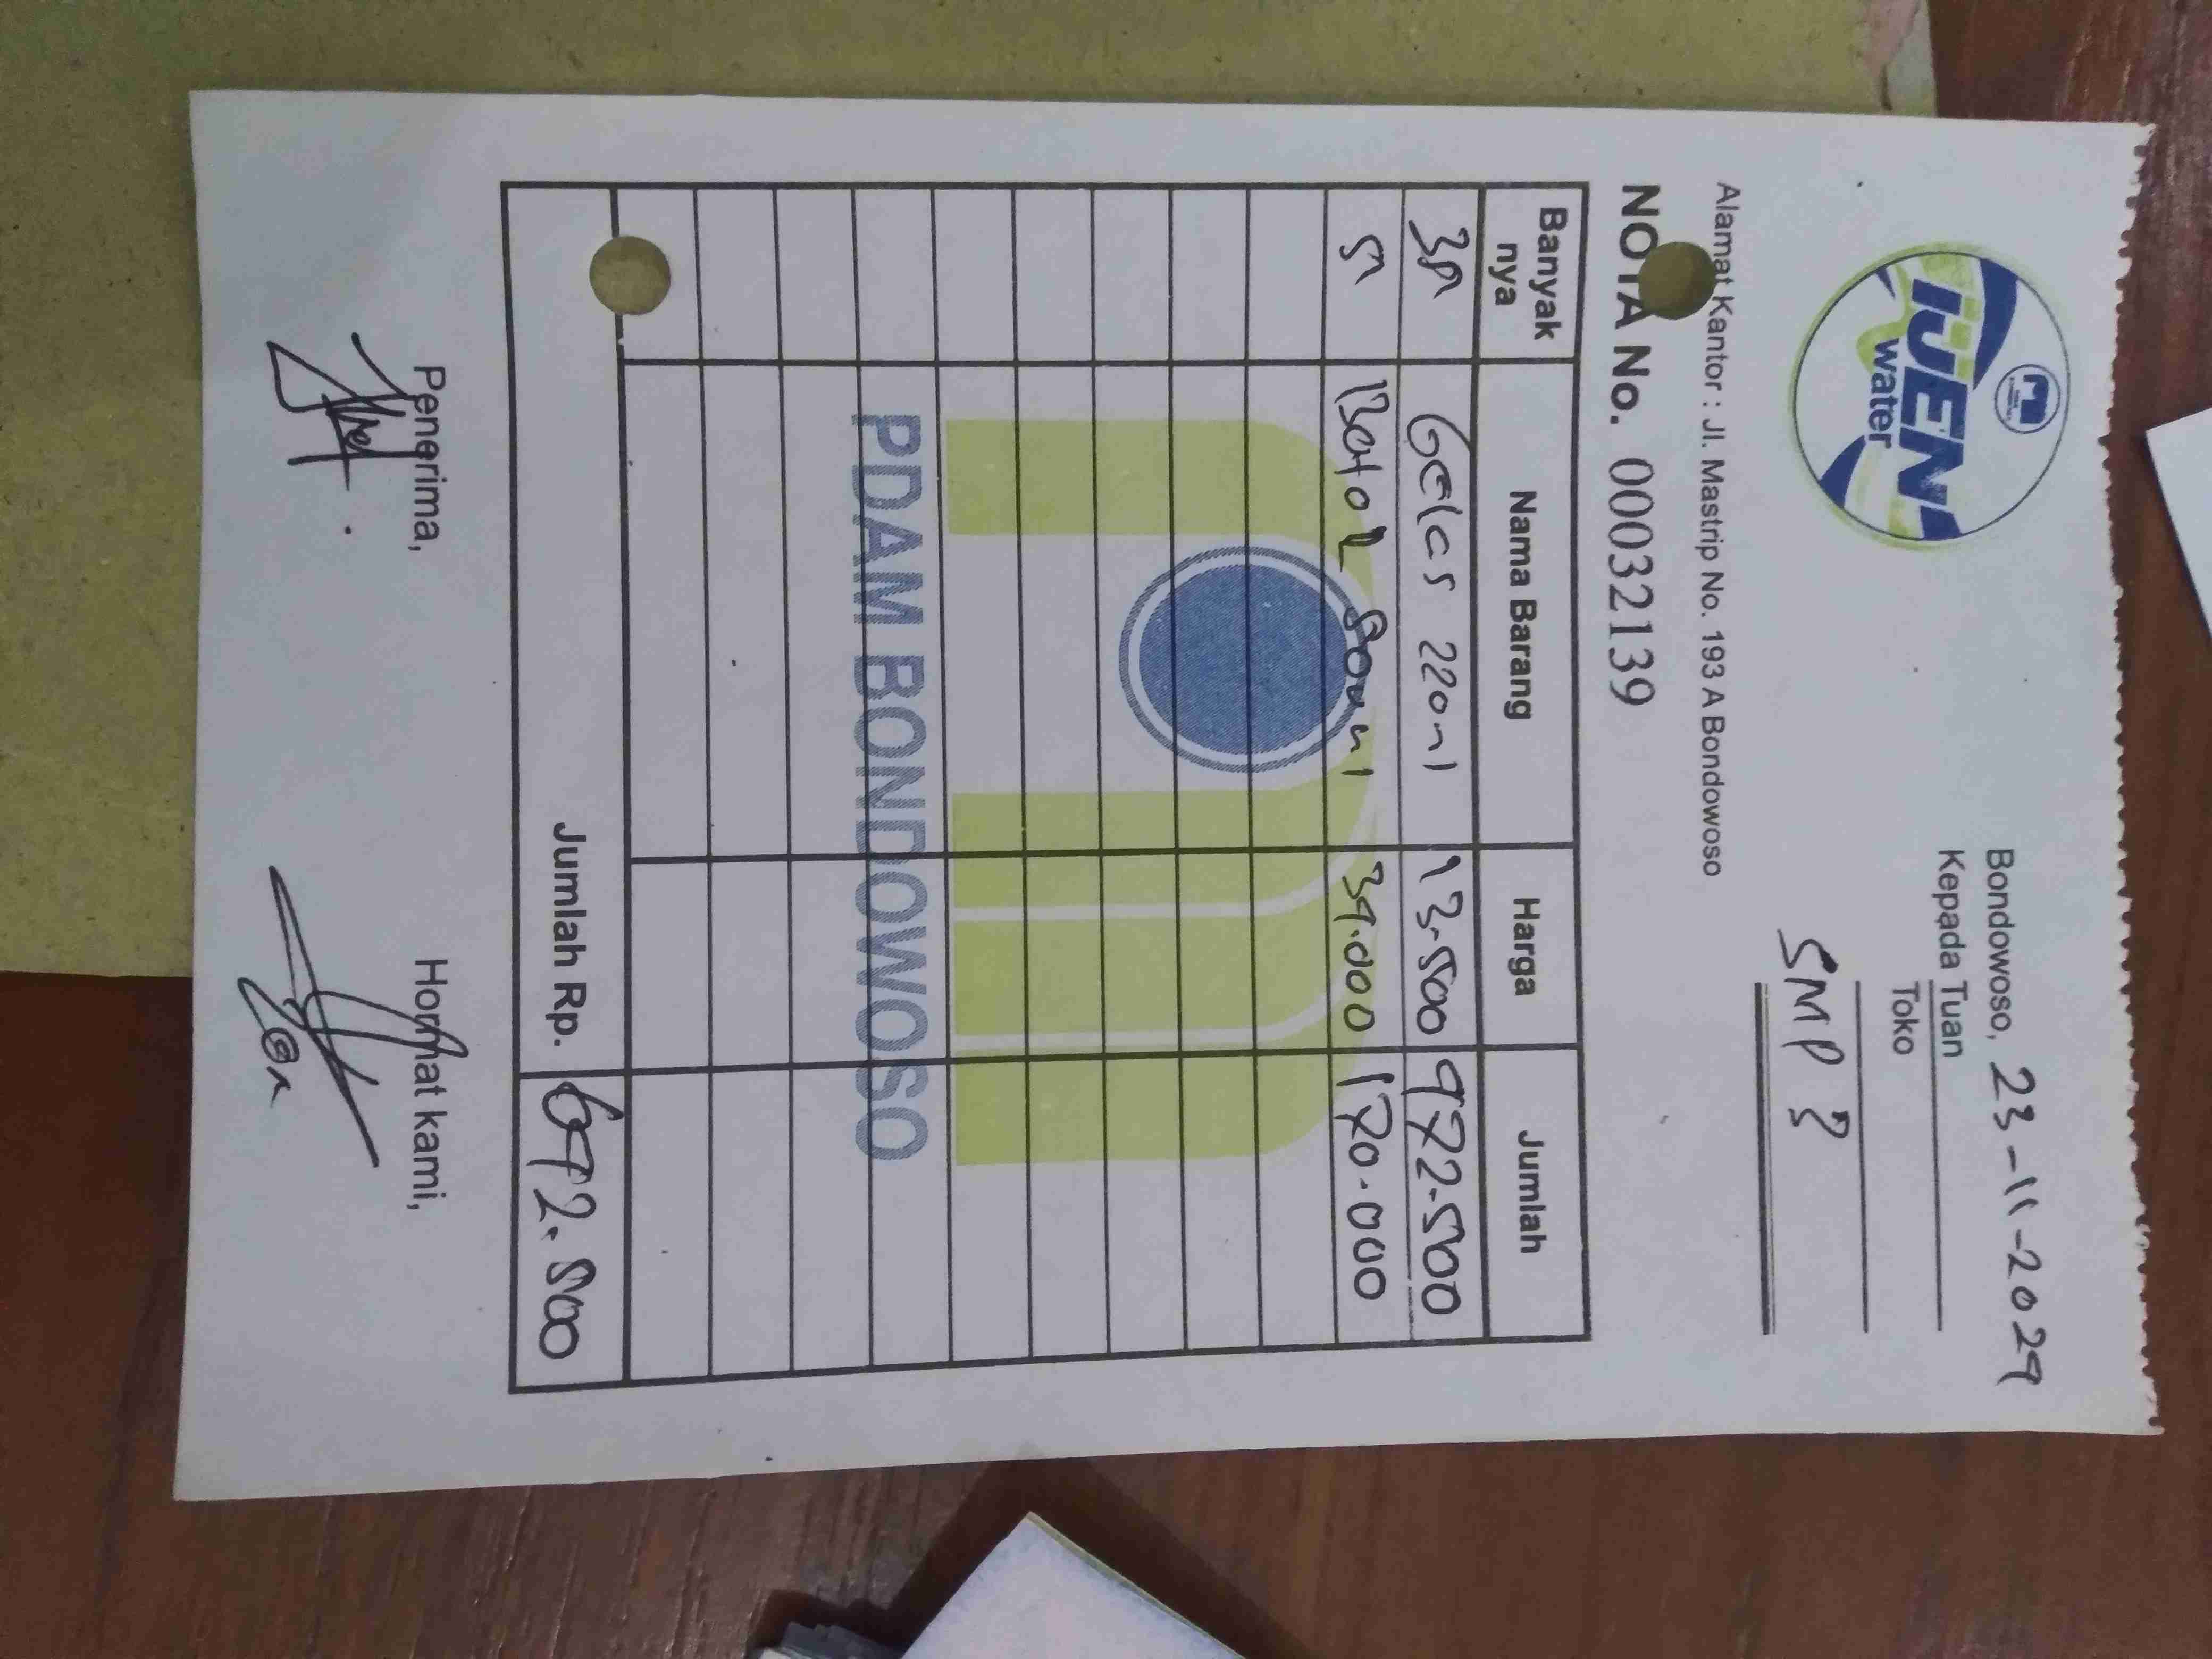 IJEN
water
Bondowoso, 23-11-2024
Kepada Tuan
Toko
SMP 3
Alamat Kantor : Jl. Mastrip No. 193 A Bondowoso
NOTA No. 00032139
Banyak nya Nama Barang Harga Jumlah
35 Gelas 220ml 13.500 472.500
5 Botol 500ml 34.000 170.000
PDAM BONDOWOSO
Jumlah Rp. 642.500
Penerima, Hormat kami,